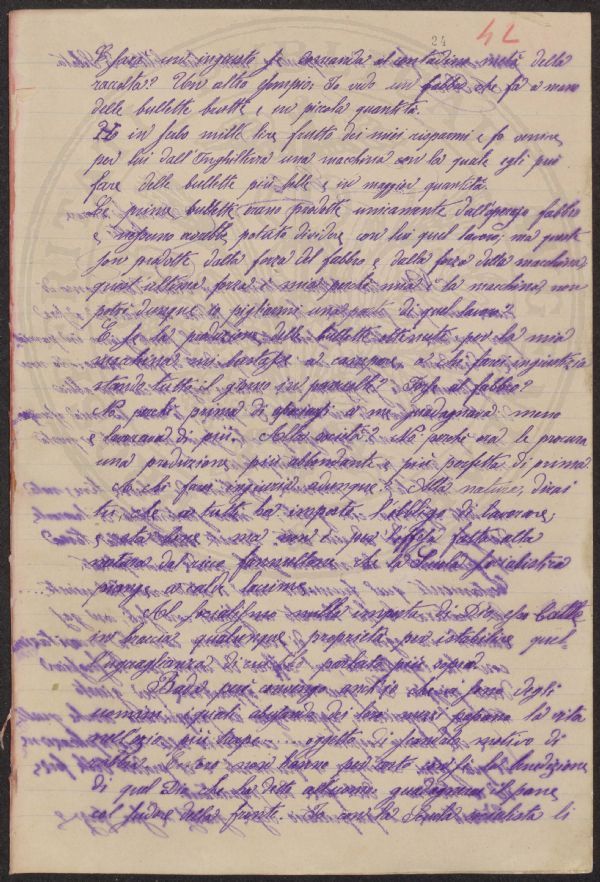 24
42
E farei una ingiusta se comanda al contadino metà della
raccolta? Un altro esempio: Io vedo un fabbro che fa a mano
delle bullette brutte e in piccola quantità.
Ho in serbo mille lire frutto dei miei risparmi e fo venire
per lui dall'Inghilterra una macchina con la quale egli può
fare delle bullette più belle e in maggior quantità.
Le prime bullette erano prodotte unicamente dall'operaio fabbro
e nessuno avrebbe potuto dividere con lui quel lavoro, ma queste
son prodotte dalla forza del fabbro e dalla forza della macchina;
quest'ultima forza è mia perchè mia è la macchina non
potrò dunque io pigliarmi una parte di quel lavoro?
E se la porzione delle bullette ottenute per la mia
macchina mi bastasse a campare, a chi farei ingiustizia
stando tutto il giorno in panciolle? Forse al fabbro?
No perchè prima di a me guadagnava meno
e lavorava di più. Alla società? No perchè ora le procura
una produzione più abbondante e più perfetta di prima
A chi farei ingiuria adunque? Alla natura, dirai
tu, che a tutti ha imposto l'obbligo di lavorare,
e sta bene ma non è per l'offesa fatta alla
natura dal mio che la Scuola Socialistica
piange a calde lacrime.
Al Socialismo nulla importa di Dio, esso batte
in breccia qualunque proprietà per istabilire quel-
l'uguaglianza di cui ho parlato più sopra.
Bada però convengo anch'io che vi sono degli
uomini i quali abusando dei loro mezzi passano la vita
nell'ozio più turpe .... oggetto di scandalo, motivo di
costoro non hanno per certo la benedizione
di quel Dio che ha detto all'uomo: guadagnerai il pane
col sudore della fronte. Io con la Scuola socialista li